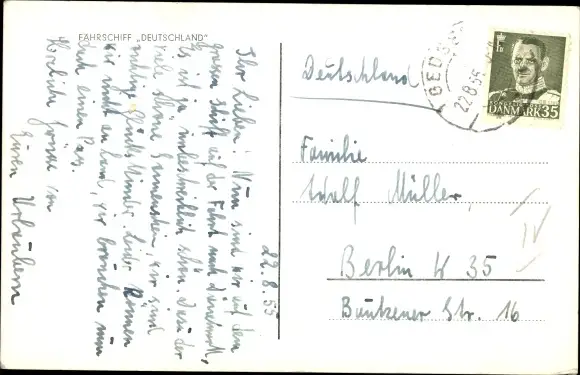 FÄHRSCHIFF „DEUTSCHLAND"
22.8.55
Ihr Lieben! Nun sind wir auf dem
grossen Schiff auf der Fahrt nach Dänemark,
Es ist ja unbeschreiblich schön. Dazu der
viele schöne Sonnenschein, wir sind
richtige Glückskinder. Leider können
wir nicht an Land, wir brauchen nun
doch einen Pass.
Herzliche Grüsse von
Euren Urlaubern
Deutschland
GEDS
22.8.55
DANMARK 35
Familie
Wolf Müller,
Berlin W 35
Bautzener Str. 16
IV